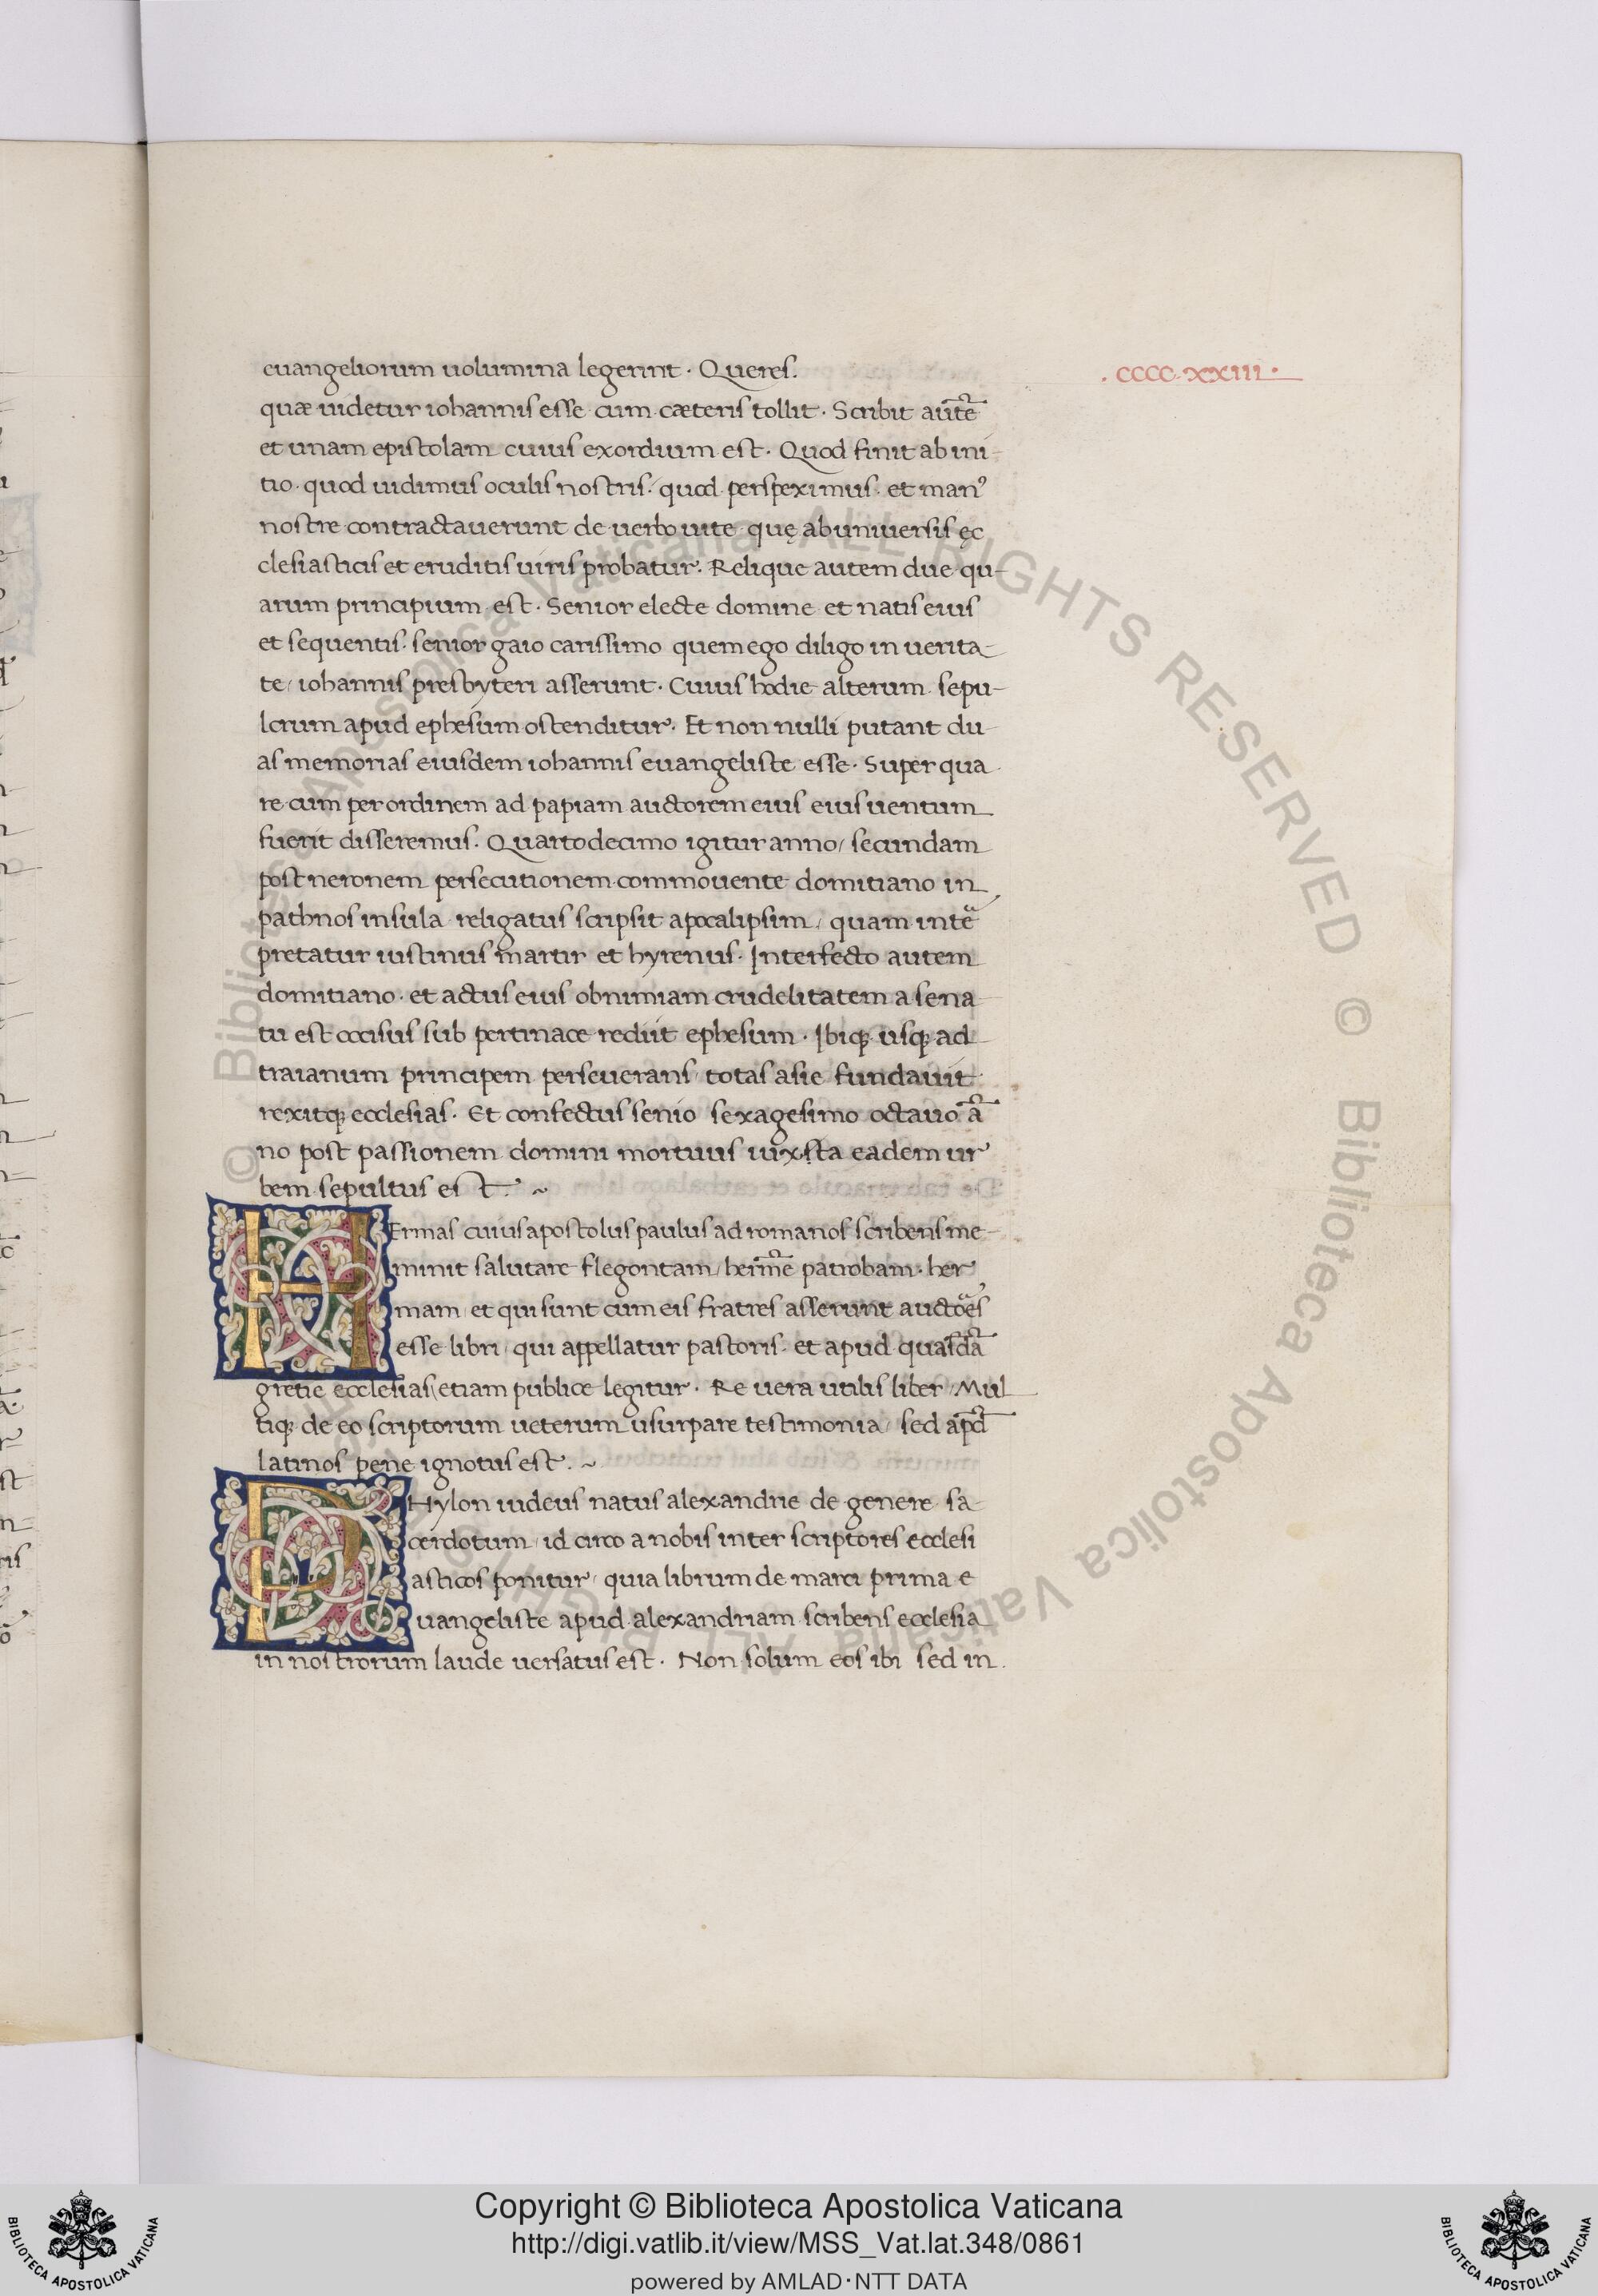 .CCCC.XXIII.
euangeliorum uolumina legerint. Queres.
quæ uidetur iohannis esse cum cæteris tollit. Scribit aūtē
et unam epistolam cuius exordium est. Quod finit ab ini-
tio. quod uidimus oculis nostris. quod perspeximus. et man⁹
nostre contractauerunt de uerbo uite quę ab uniuersis ęc
clesiasticis et eruditis uiris probatur. Relique autem due qu-
arum principium est. Senior electe domine et natis eius
et sequentis. senior gaio carissimo quem ego diligo in uerita-
te/ iohannis presbyteri asserunt. Cuius hodie alterum sepu-
lcrum apud ephesum ostenditur. Et non nulli putant du-
as memorias eiusdem iohannis euangeliste esse. Super qua
re cum per ordinem ad papiam auctorem eius eius uentum
fuerit disseremus. Quartodecimo igitur anno/ secundam
post neronem persecutionem commouente domitiano in
pathnos insula religatus scripsit apocalipsim/ quam intē
pretatur iustinus martir et hyrenus. Interfecto autem
domitiano. et actus eius ob nimiam crudelitatem a sena
tu est occisus sub pertinace rediit ephesum. Ibiqꝫ usqꝫ ad
traianum principem perseuerans totas asie fundauit
rexitqꝫ ecclesias. Et confectus senio sexagesimo octauo ā
no post passionem domini mortuus iuxsta eadem ur
bem sepultus est. ~
HErmas cuius apostolus paulus ad romanos scribens me-
minit salutare flegontam/ hermē patrobam. her
mam et qui sunt cum eis fratres asserunt auctoēs
esse libri/ qui appellatur pastoris. et apud quasdā
gretie ecclesias/ etiam publice legitur. Re uera utilis liber Mul
tiqꝫ de eo scriptorum ueterum usurpare testimonia/ sed apd̄
latinos pene ignotus est. ~
PHylon iudeus natus alexandrie de genere sa-
cerdotum/ id circo a nobis inter scriptores ecclesi
asticos ponitur/ quia librum de marci prima e
uangeliste apud alexandriam scribens ecclesia
in nostrorum laude uersatus est. Non solum eos ibi sed in
Copyright © Biblioteca Apostolica Vaticana
http://digi.vatlib.it/view/MSS_Vat.lat.348/0861
powered by AMLAD·NTT DATA
BIBLIOTECA APOSTOLICA VATICANA
BIBLIOTECA APOSTOLICA VATICANA
© Biblioteca Apostolica Vaticana ALL RIGHTS RESERVED
© Biblioteca Apostolica Vaticana ALL RIGHTS RESERVED